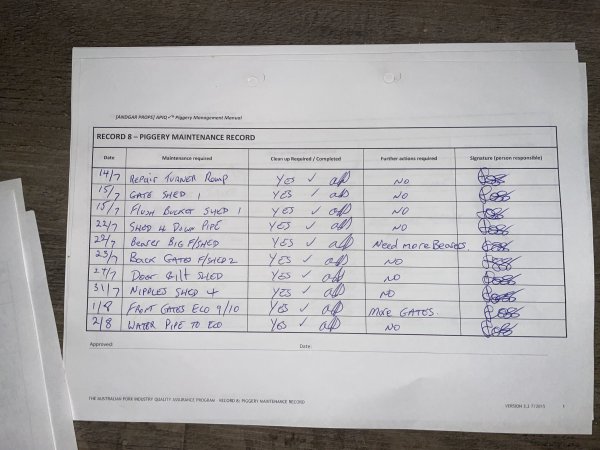 [ANDGAR PROPS] APIQ✓® Piggery Management Manual
RECORD 8 – PIGGERY MAINTENANCE RECORD
Date Maintenance required Clean up Required / Completed Further actions required Signature (person responsible)
14/7 REPAIR TURNER RAMP YES ✓ NO
15/7 GATE SHED 1 YES ✓ NO
15/7 FLUSH BUCKET SHED 1 YES ✓ NO
22/7 SHED 4 DOWN PIPE YES ✓ NO
22/7 BIG F/SHED YES ✓ Need more
23/7 BACK GATES F/SHED 2 YES ✓ NO
27/7 DOOR GILT SHED YES ✓ NO
31/7 NIPPLES SHED 4 YES ✓ NO
1/8 FRONT GATES ECO 9/10 YES ✓ MORE GATES.
2/8 WATER PIPE TO ECO YES ✓ NO
Approved: Date:
THE AUSTRALIAN PORK INDUSTRY QUALITY ASSURANCE PROGRAM RECORD 8: PIGGERY MAINTENANCE RECORD VERSION 3.3 7/2015 1